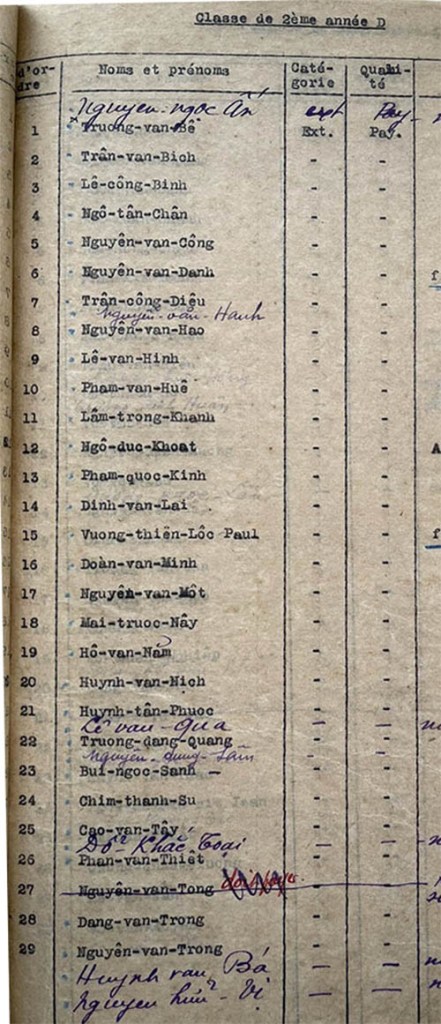 Classe de 2ème année D
d'or-dre Noms et prénoms Caté-gorie Quali-té
Nguyen-ngoc Ẩn ext Pay-
1 Truong-van-Bê Ext. Pay.
2 Trân-van-Bich - -
3 Lê-công-Binh - -
4 Ngô-tân-Chân - -
5 Nguyên-van-Công - -
6 Nguyên-van-Danh - - f
7 Trân-công-Diêu - -
Nguyễn-văn-Hanh
8 Nguyên-van-Hao - -
9 Lê-van-Hinh - -
10 Pham-van-Huê - -
11 Lâm-trong-Khanh - -
12 Ngô-duc-Khoat - - A
13 Pham-quoc-Kinh - -
14 Dinh-van-Lai - -
15 Vuong-thiên-Lôc Paul - - f
16 Doàn-van-Minh - -
17 Nguyên-van-Môt - -
18 Mai-truoc-Nây - -
19 Hô-van-Năm - -
20 Huynh-van-Nich - -
21 Huynh-tân-Phuoc - -
Lê van-Qua — —
22 Truong-dang-Quang - -
Nguyen-dung-Sầm - -
23 Bui-ngoc-Sanh - - -
24 Chim-thanh-Su - -
25 Cao-van-Tây - -
Đỗ Khắc Toai — —
26 Phan-van-Thiêt - -
27 Nguyên-van-Tong - -
28 Dang-van-Trong - -
29 Nguyên-van-Trong - -
Huynh van Bá — —
Nguyen hữu-Vị — —